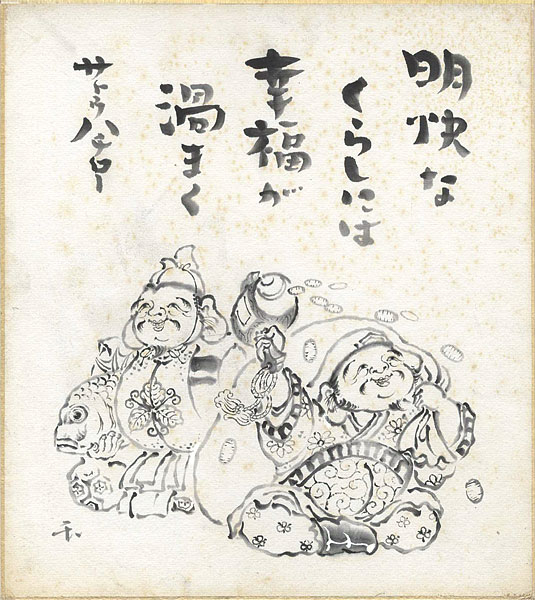 明快な
くらしには
幸福が
渦まく
サトウハチロー